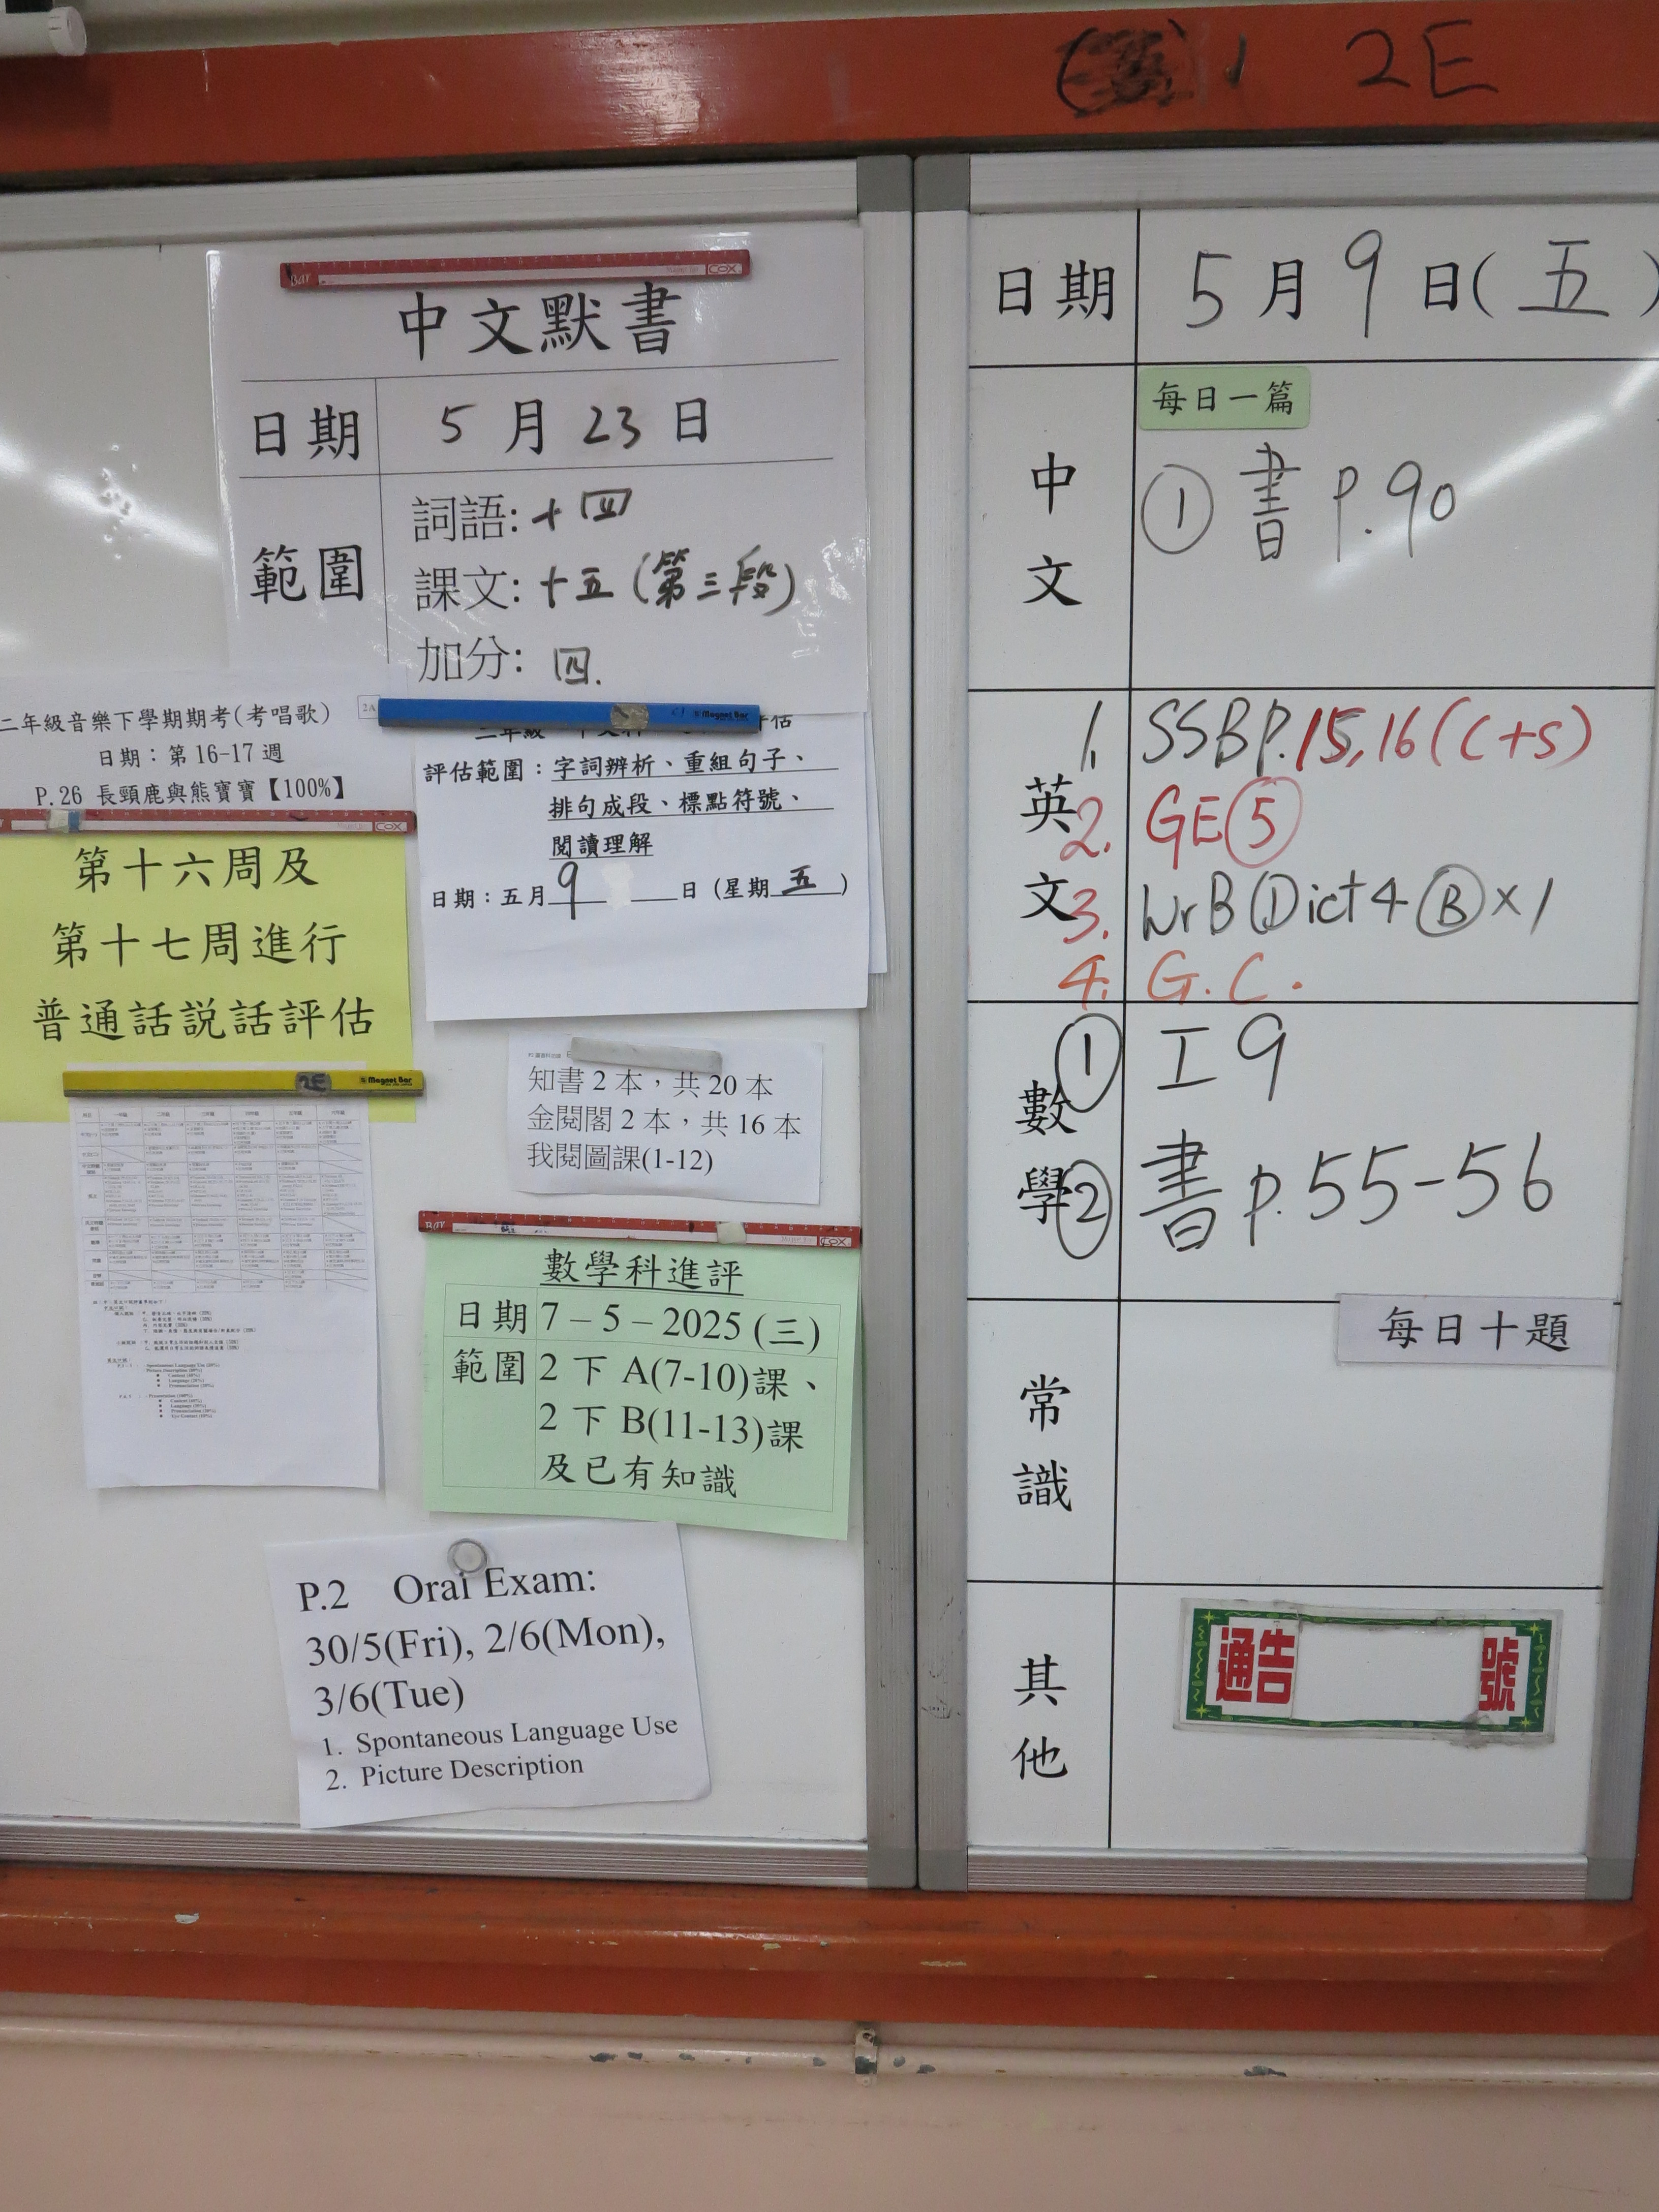 2E
中文默書
日期 5月23日
範圍 詞語: 十四
課文: 十五(第三段)
加分: 四.
二年級音樂下學期期考(考唱歌)
日期：第16-17週
P.26 長頸鹿與熊寶寶【100%】
第十六周及
第十七周進行
普通話説話評估
2A
評估範圍：字詞辨析、重組句子、
排句成段、標點符號、
閱讀理解
日期：五月9日(星期五)
知書2本，共20本
金閱閣2本，共16本
我閱圖課(1-12)
2E
Magnet Bar
數學科進評
日期 7－5－2025 (三)
範圍 2下A(7-10)課、
2下B(11-13)課
及已有知識
P.2 Oral Exam:
30/5(Fri), 2/6(Mon),
3/6(Tue)
1. Spontaneous Language Use
2. Picture Description
日期 5月9日(五)
中文
每日一篇
① 書 P.90
英文
1. SSB P.15,16(C+S)
2. GE⑤
3. WrB Ⓓict 4 Ⓑ×1
4. G.C.
數學
① 工9
② 書 p.55-56
常識
每日十題
其他
通告 號